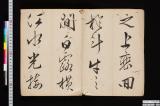 之上裴回
於斗牛之
間白露横
江水光接